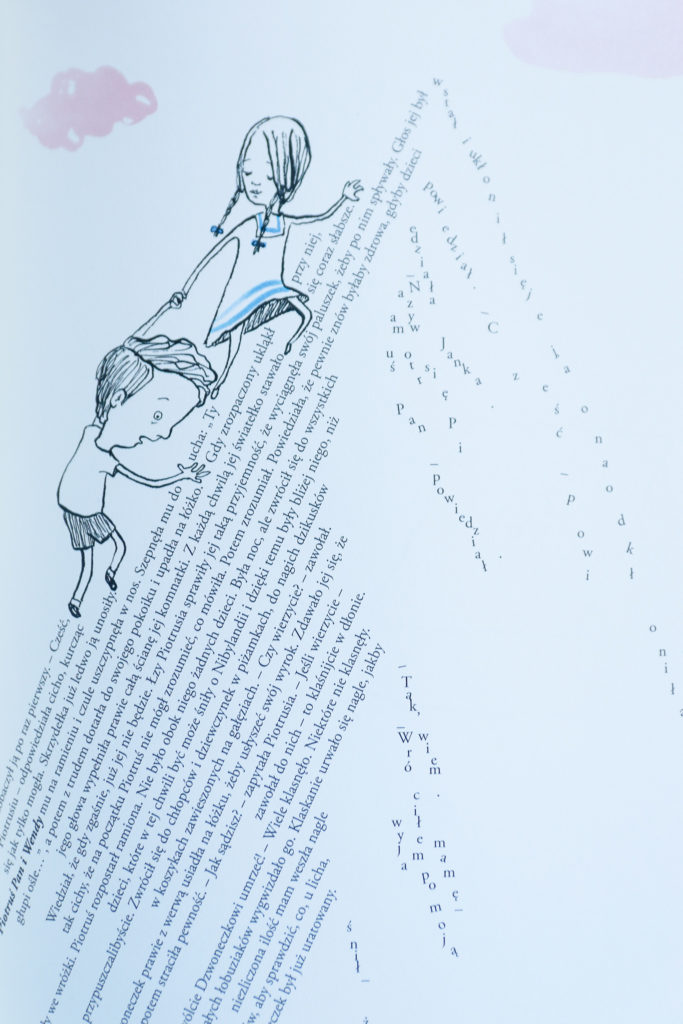 po raz pierwszy. – Cześć,
Piotrusiu – odpowiedziała cicho, kurcząc
się jak tylko mogła. Skrzydełka już ledwo ją unosiły.
Piotruś Pan i Wendy
mu na ramieniu i czule uszczypnęła w nos. Szepnęła mu do ucha: „Ty
głupi ośle…”, a potem z trudem dotarła do swojego pokoiku i upadła na łóżko. Gdy zrozpaczony ukląkł przy niej,
jego głowa wypełniła prawie całą ścianę jej komnatki. Z każdą chwilą jej światełko stawało się coraz słabsze.
Wiedział, że gdy zgaśnie, już jej nie będzie. Łzy Piotrusia sprawiły jej taką przyjemność, że wyciągnęła swój paluszek, żeby po nim spływały. Głos jej był
tak cichy, że na początku Piotruś nie mógł zrozumieć, co mówiła. Potem zrozumiał. Powiedziała, że pewnie znów byłaby zdrowa, gdyby dzieci
we wróżki. Piotruś rozpostarł ramiona. Nie było obok niego żadnych dzieci. Była noc, ale zwrócił się do wszystkich
dzieci które w tej chwili być może śniły o Nibylandii i dzięki temu były bliżej niego, niż
przypuszczalibyście. Zwrócił się do chłopców i dziewczynek w piżamkach, do nagich dzikusków
w koszykach zawieszonych na gałęziach. – Czy wierzycie? – zawołał.
oneczek prawie z werwą usiadła na łóżku, żeby usłyszeć swój wyrok. Zdawało jej się, że
potem straciła pewność. – Jak sądzisz? – zapytała Piotrusia. – Jeśli wierzycie –
zawołał do nich – to klaśnijcie w dłonie.
Dzwoneczkowi umrzeć! – Wiele klasnęło. Niektóre nie klasnęły.
łobuziaków wygwizdało go. Klaskanie urwało się nagle, jakby
niezliczona ilość mam weszła nagle
w, aby sprawdzić, co, u licha,
czek był już uratowany,
wstał i ukłonił się jej a ona odkł
oniła
powiedział. – Cześć – powi
edziała
– Nazywam się Pi
otruś Pan – powiedział.
Janka.
– Tak, wiem.
– Wróciłem po moją
mamę –
wyja
śnił –